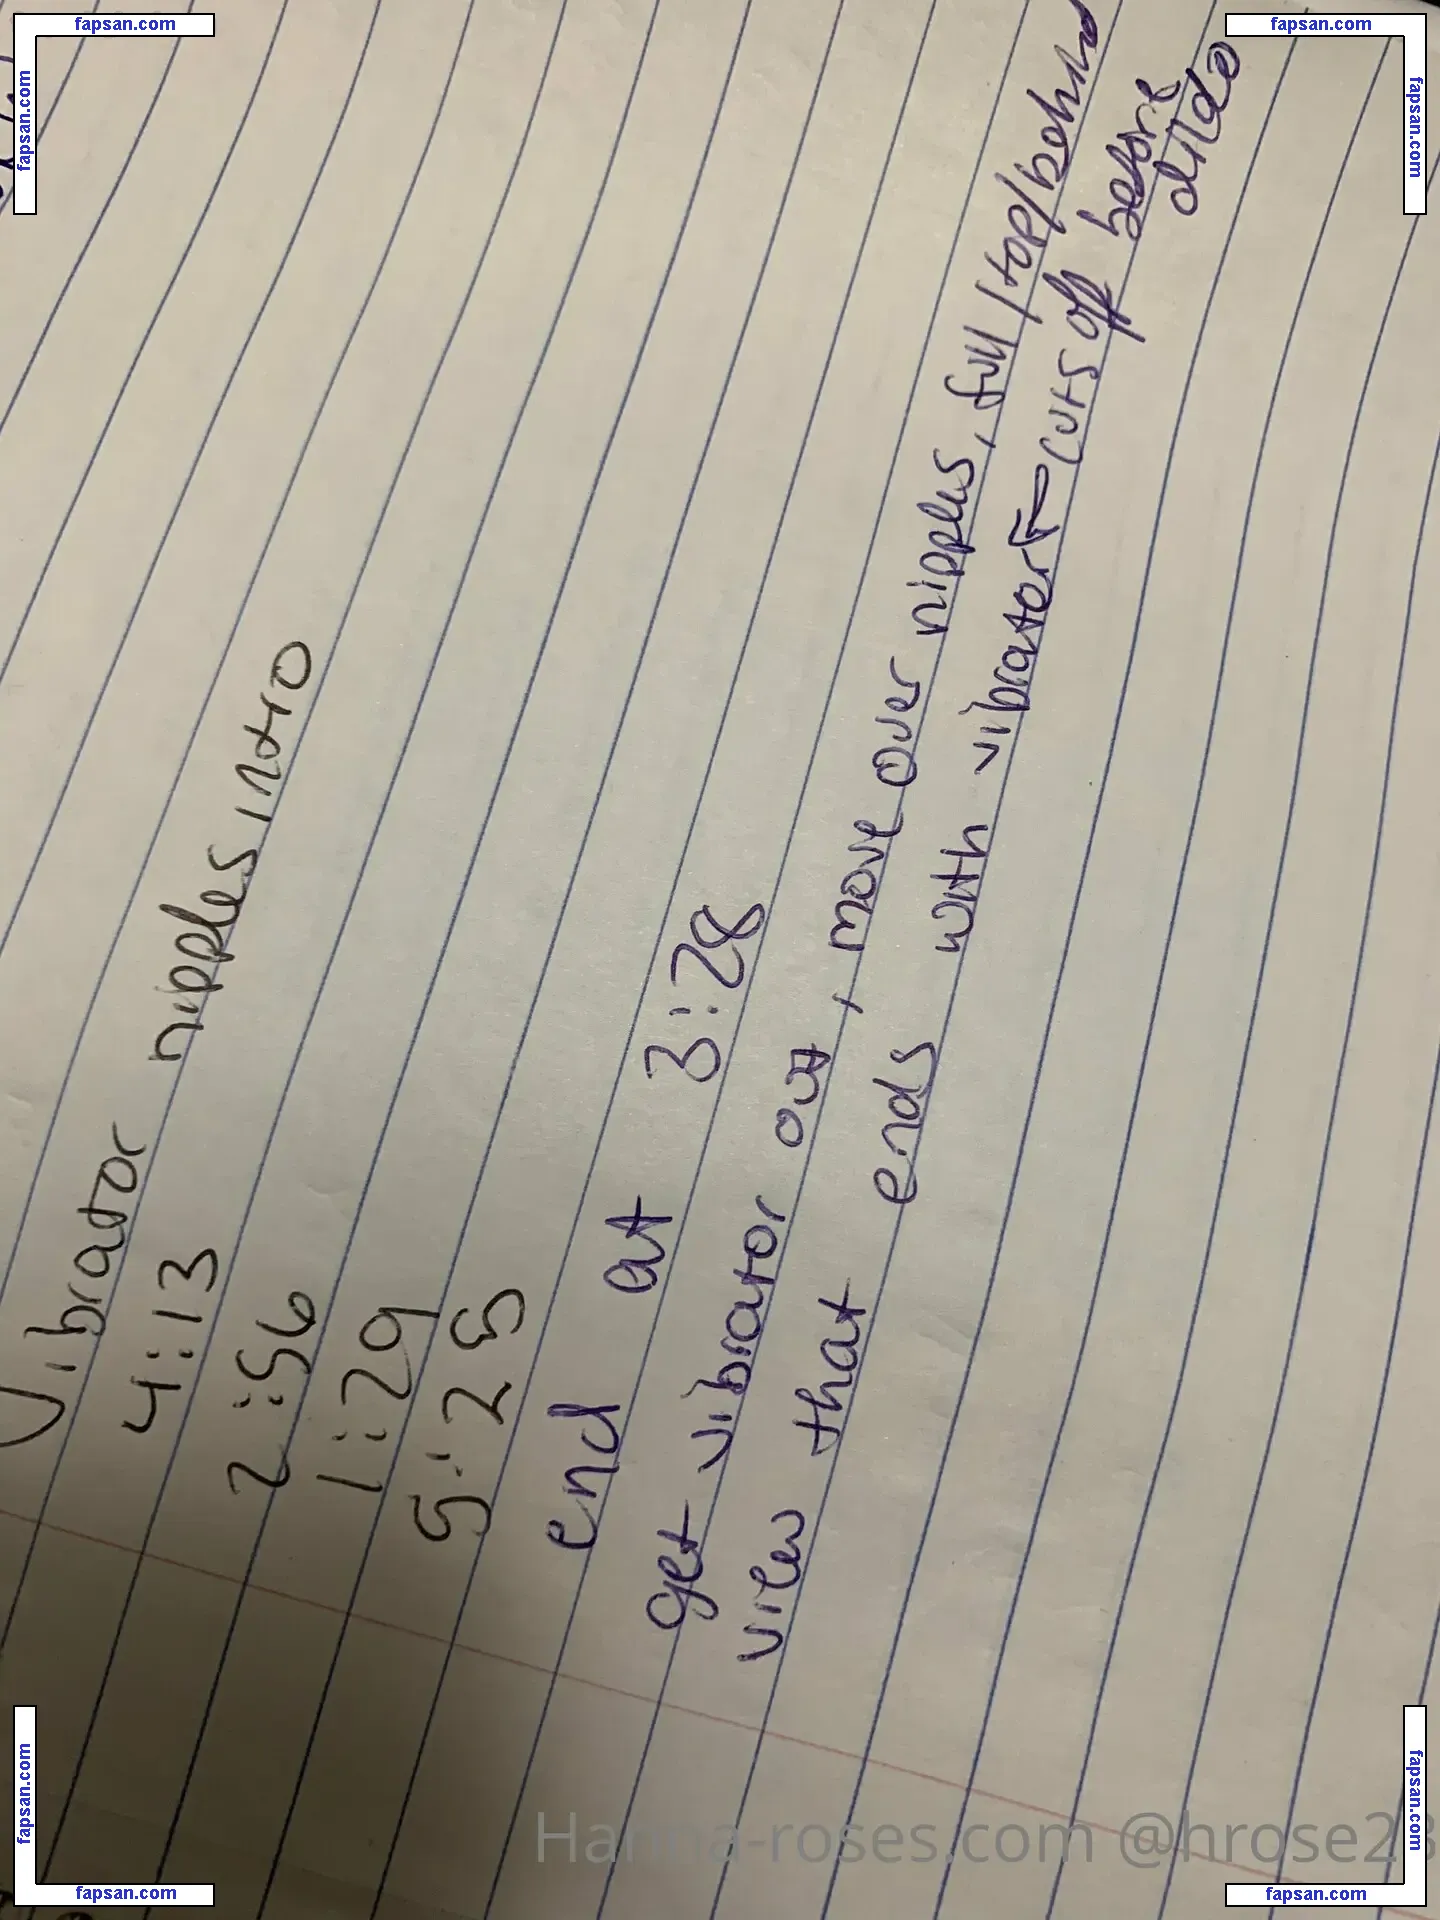 fapsan.com
fapsan.com
fapsan.com
fapsan.com
Vibrator nipples intro
4:13
2:56
1:29
5:25
end at 3:28
get vibrator out, move over nipples, full/toe/behind
view that ends with vibrator ← cuts off before
dildo
-roses.com @hrose23
fapsan.com
fapsan.com
fapsan.com
fapsan.com